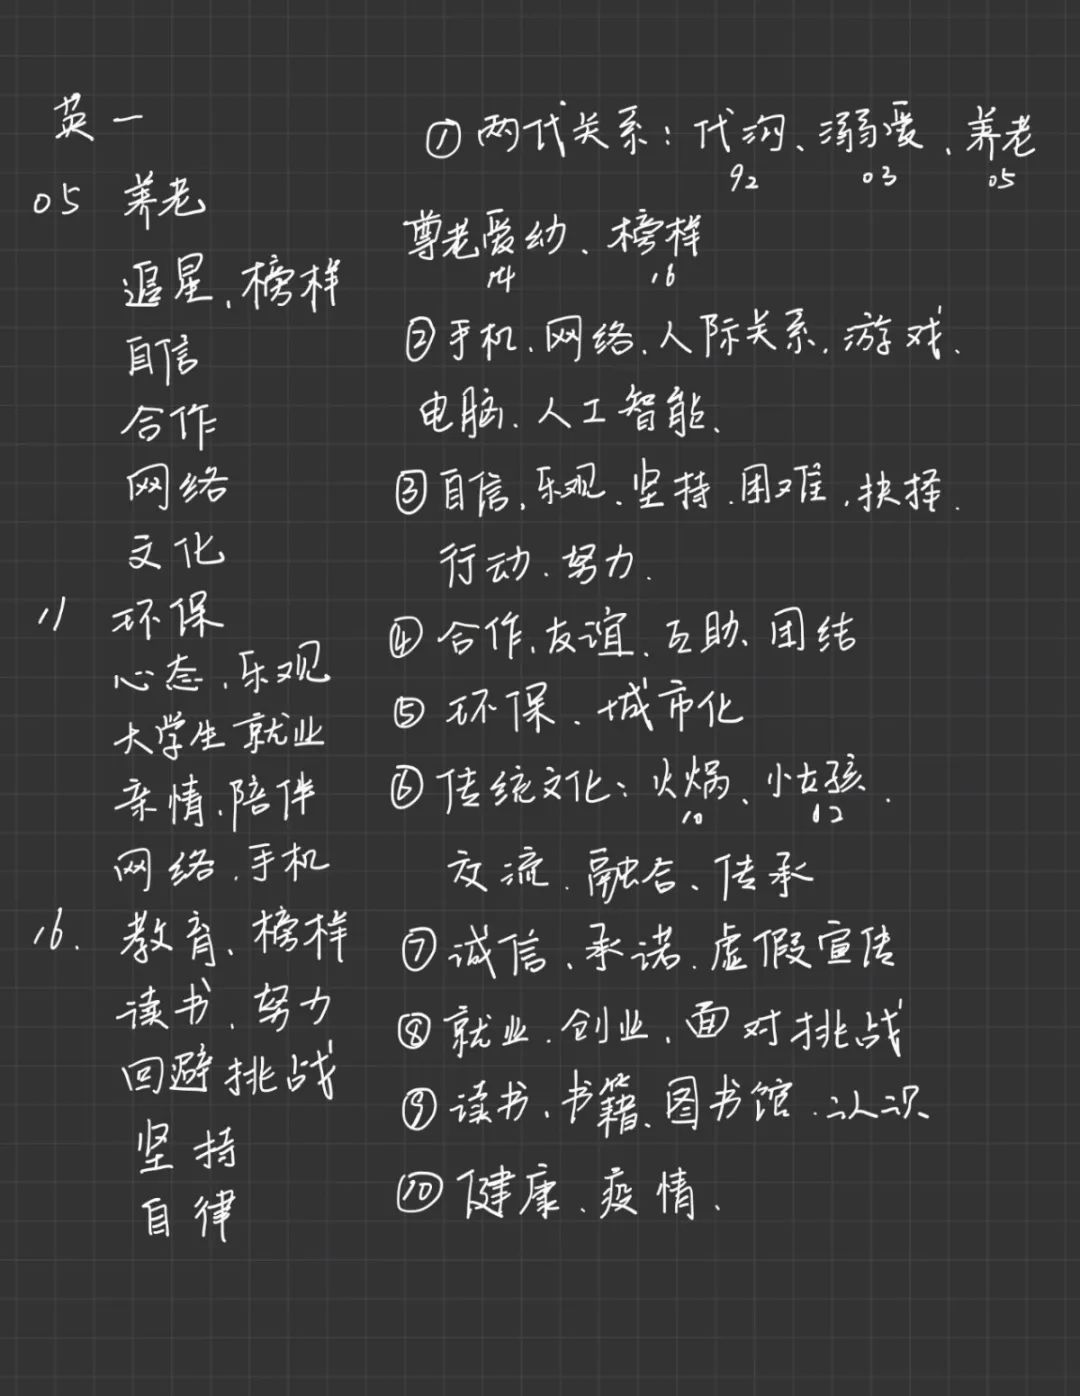 英一
05 养老
追星、榜样
自信
合作
网络
文化
11 环保
心态、乐观
大学生就业
亲情、陪伴
网络、手机
16. 教育、榜样
读书、努力
回避挑战
坚持
自律
①两代关系：代沟、溺爱、养老
92 03 05
尊老爱幼、榜样
14 16
②手机、网络、人际关系、游戏、
电脑、人工智能、
③自信、乐观、坚持、困难、抉择、
行动、努力、
④合作、友谊、互助、团结
⑤环保、城市化
⑥传统文化：火煱、小女孩、
10 02
交流、融合、传承
⑦诚信、承诺、虚假宣传
⑧就业、创业、面对挑战
⑨读书、书籍、图书馆、认识
⑩健康、疫情、